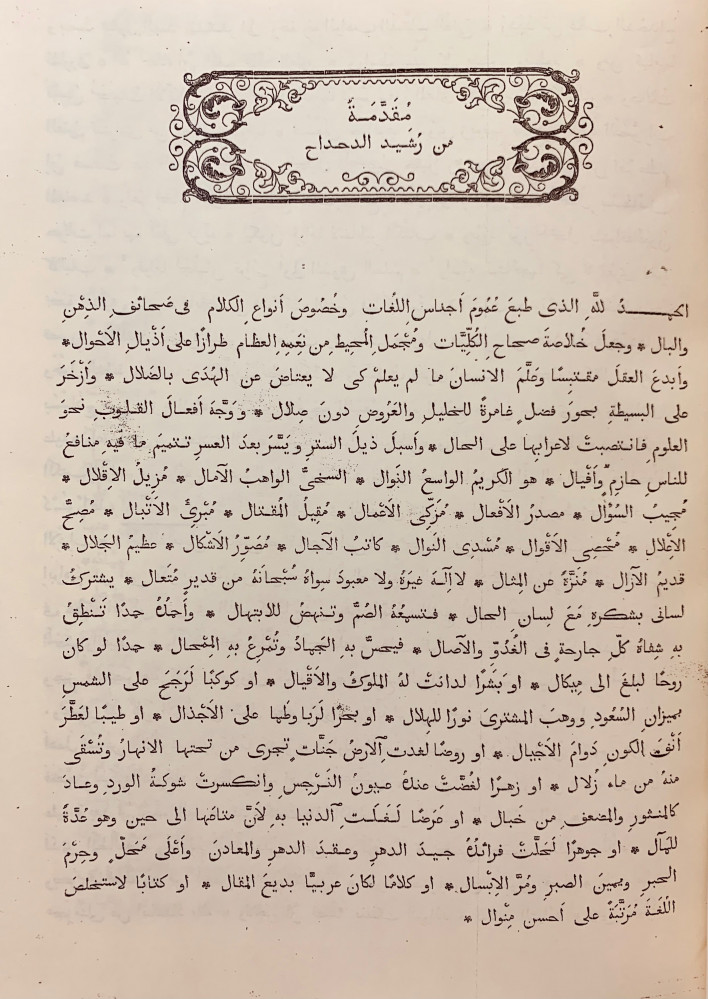 مُقَدَّمَـةٌ
من رُشَيـد الدحداح
الحمـــدُ للَّهِ الذى طبعَ عُمُومَ أجناس اللُغات وخُصُوصَ أنواع الكلام فى صَحائفِ الذِهْنِ
والبال * وجعلَ خُلاصةَ صحاح الكُلِيَّات ومُجْمَل المُحيط من نِعَمِهِ العظام طرازًا على أذْيال الأحْوال *
وأبدعَ العقلَ مقتبِسًا وعَلَّمَ الانسانَ ما لم يعلمْ كى لا يعتاضَ عن الهُدَى بالضَلال * وأزْخَرَ
على البسيطةِ بحورَ فضلٍ غامرةً للخليل والعَرُوضِ دونَ صِلال * ووَجَّهَ أفعـالَ القـلـوبِ نحوَ
العلوم فانتصبتْ لاعرابها على الحال * وأسبلَ ذيلَ الستر ويَسَّرَ بعدَ العسرِ تتميمَ ما فيهِ منافعُ
للناسِ حازِمٍ وأقْيال * هو الكريمُ الواسعُ النَوال * السخىُّ الواهبُ الآمال * مُزِيلُ الاِقْلال *
مُجيبُ السُؤال * مصدرُ الأفْعال * مُزَكِّى الأعْمال * مُقِيلُ المُقْتال * مُبْرِئُ الأتْبال * مُصِحُّ
الأعْلال * مُحْصِى الأقْوال * مُسْدِى النوال * كاتبُ الآجال * مُصَوِّرُ الأشْكال * عظيمُ الجَلال *
قديمُ الآزال * مُنَزَّهٌ عن المِثال * لا اِلـهَ غيرَهُ ولا معبودَ سِواهُ سُبْحانَهُ من قديرٍ مُتَعال * يشتركُ
لسانى بشكرِهِ مَعَ لِسانِ الحال * فتسمعُهُ الصُمُّ وتنهضُ للابتهال * وأحمدُهُ حمدًا تَـنْطِقُ
بهِ شِفاهُ كلِّ جارحةٍ فى الغُدُوِّ والآصال * فيحسُّ بهِ الجمادُ وتُمْرِعُ بهِ الاِمْحال * حمدًا لو كانَ
روحًا لبلغَ الى ميكال * او بَشَرًا لدانتْ لهُ الملوكُ والأقْيال * او كوكبًا لَرَجَحَ على الشمسِ
بميزانِ السُعُود ووهبَ المشترىَ نورًا للهلال * او بحرًا لَرَبا وطما على الأجْذال * او طيبًا لعَطَّرَ
أنْفَ الكونِ دَوامَ الأجْيال * او روضًا لغدتِ الارضُ جَنَّات تجرى من تحتها الانهارُ وتُسْقَى
منهُ من ماء زُلال * او زهـرًا لغُضَّتْ عنهُ عـيـونُ النَـرْجِس وانكسرتْ شوكـةُ الورد وعـادَ
كالمنثور والمضعف من خَبال * او عَرَضًا لَـغَـلَـتِ الدنيا بهِ لأنَّ متاعَها الى حين وهو عُدَّةٌ
للمآل * او جوهرًا لَحَلَّتْ فرائدُهُ جِيدَ الدهر وعقدَ الدهر والمعادن وأعْلَى مَحَلّ وجِرْمَ
الحبر ويمينَ الصبر ومُرَّ الاِبْسال * او كلامًا لكانَ عربيًّا بديعَ المقال * او كتابًا لاستخلصَ
اللُغةَ مُرَتَّبَةً على أحسنِ مِنْوال *